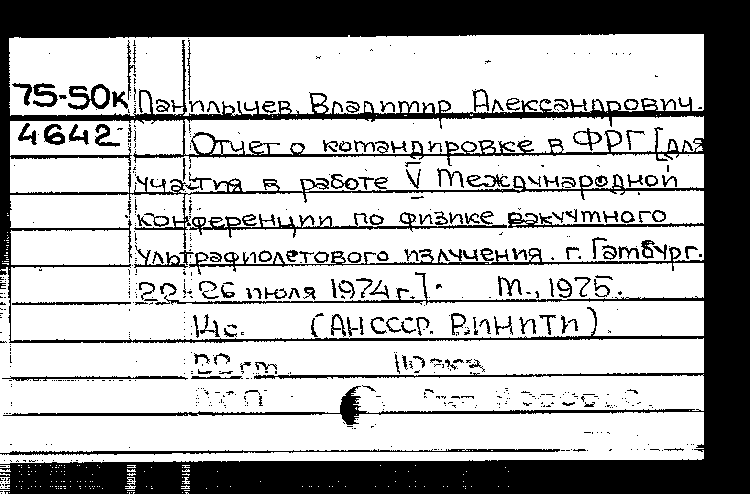 75-50к Данилычев Владимир Александрович.
4642 Отчет о командировке в ФРГ [для
участия в работе V Международной
конференции по физике вакуумного
ультрафиолетового излучения. г. Гамбург.
22-26 июля 1974 г.]. М., 1975.
14с. (АН СССР. ВИНИТИ).
22 см 110 экз